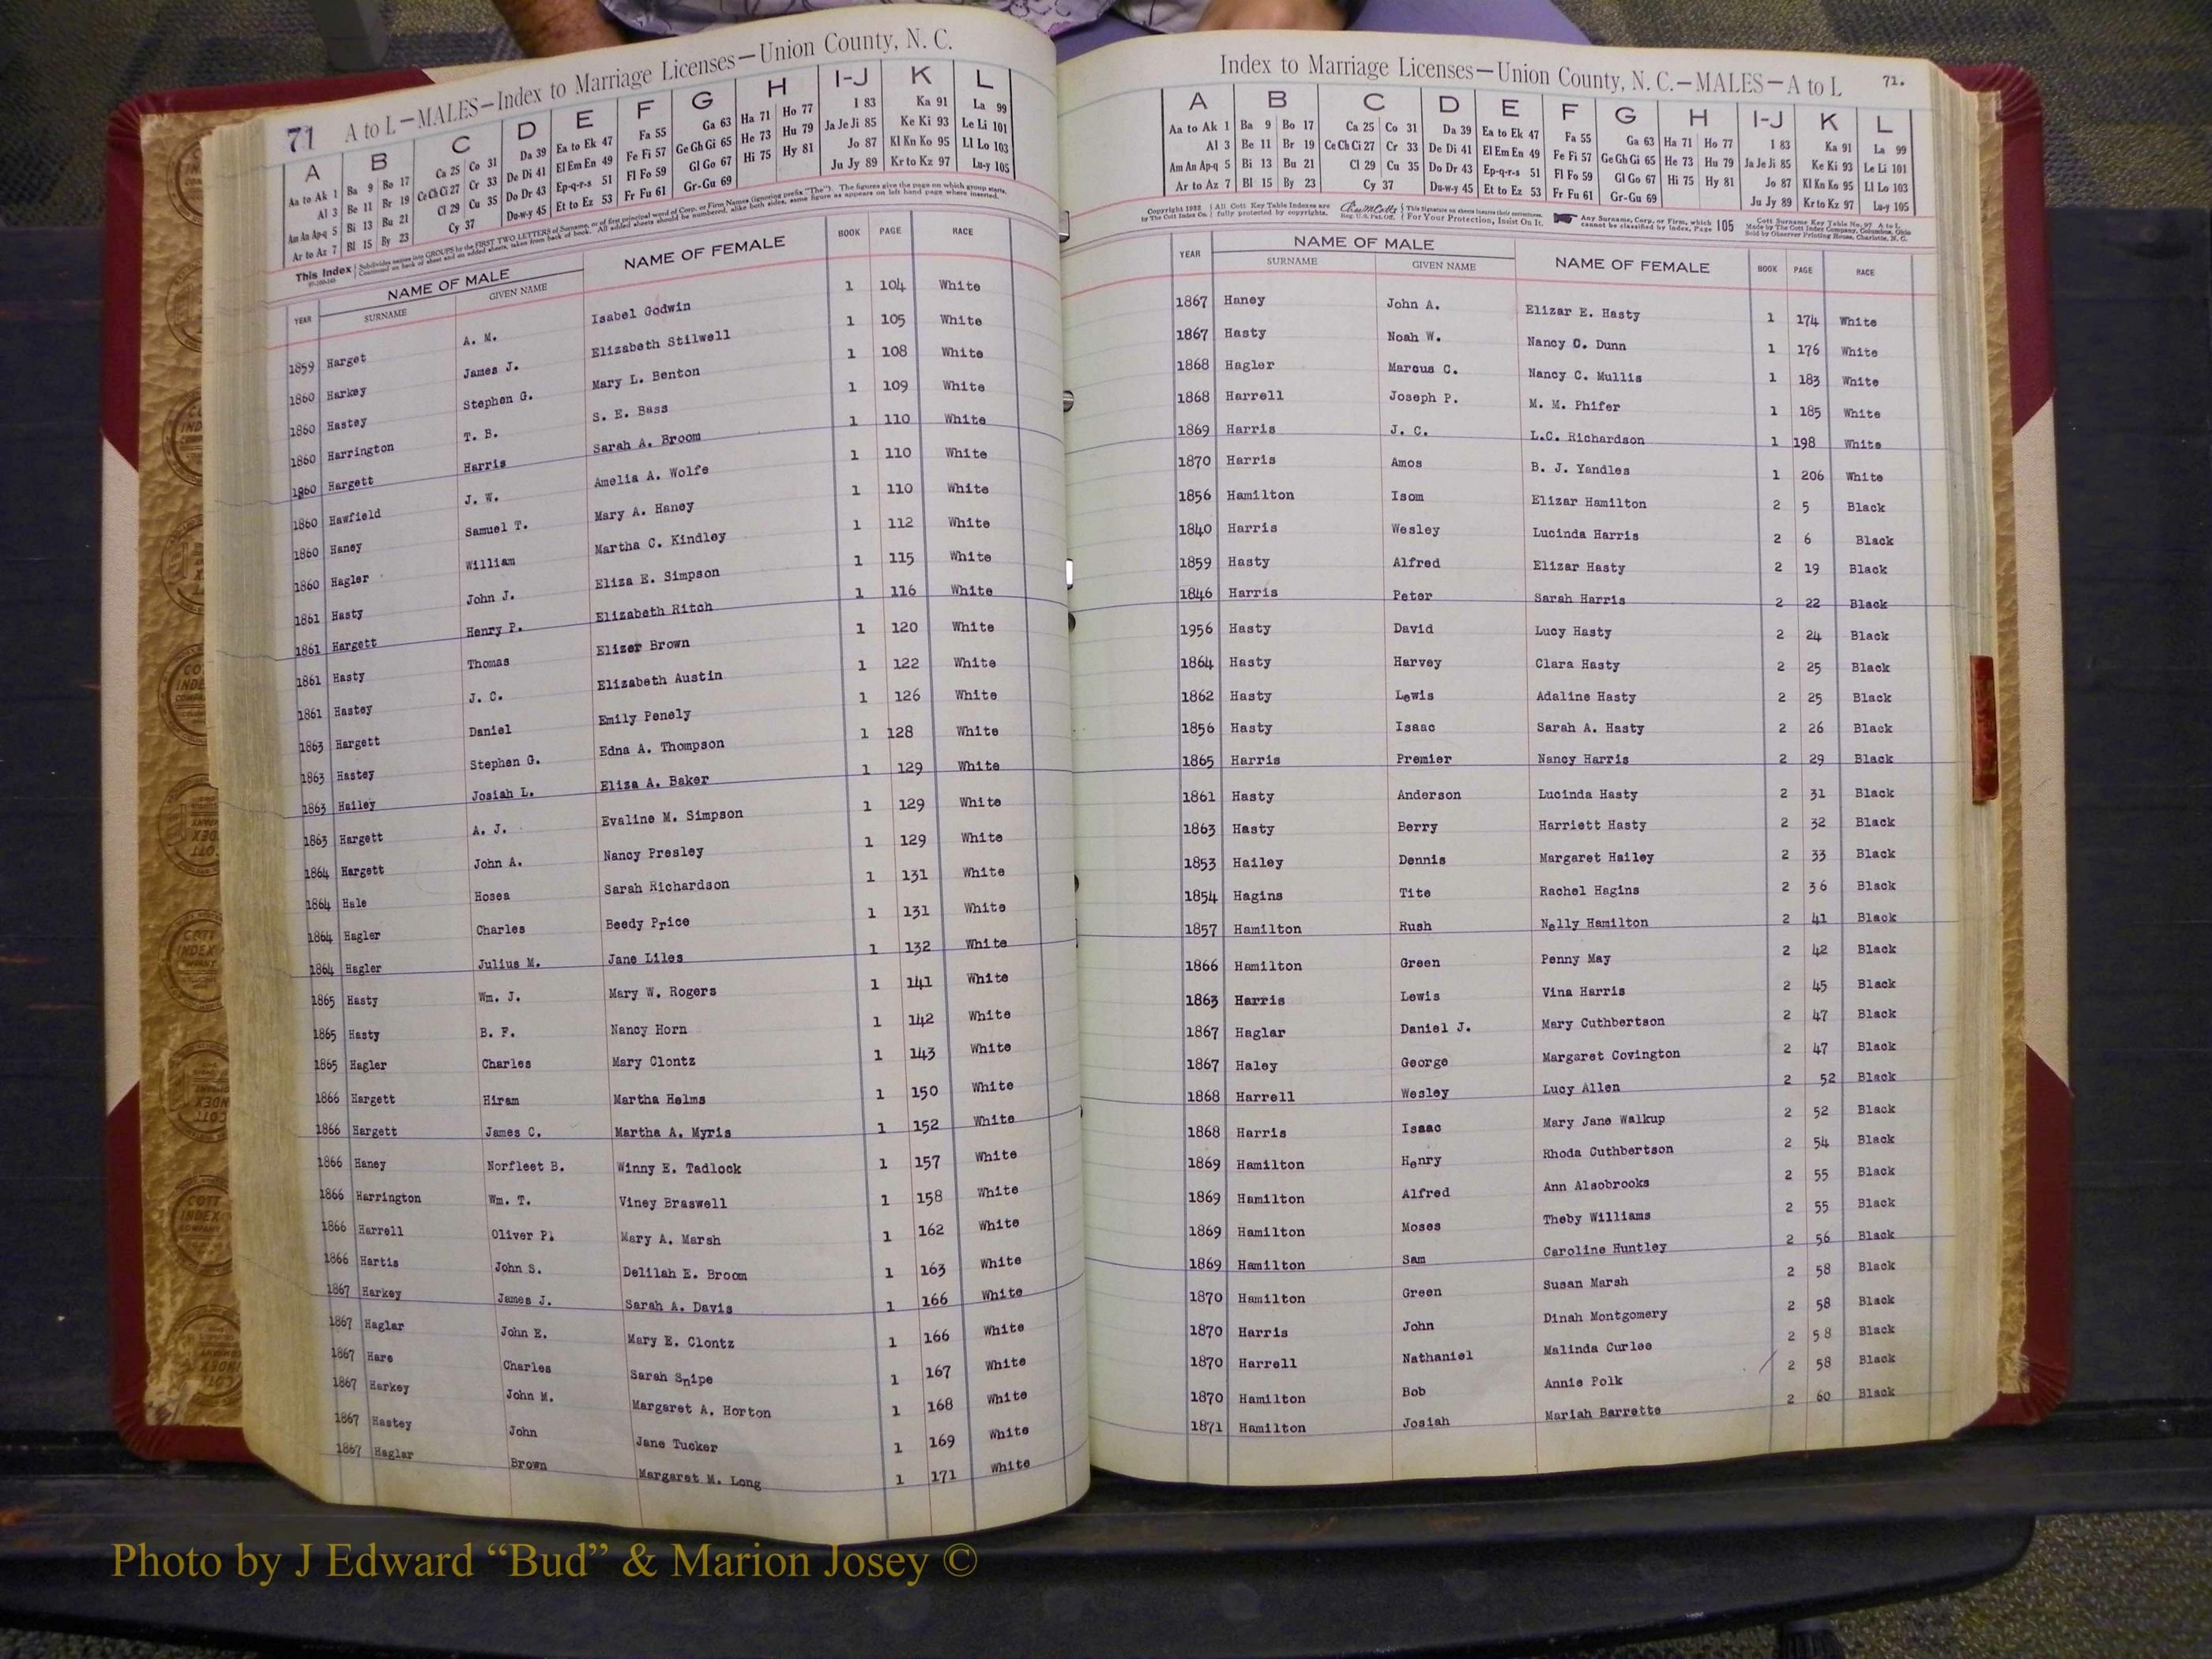 71 A to L—MALES—Index to Marriage Licenses—Union County, N. C.
A B C D E F G H I-J K L
Aa to Ak 1 Ba 9 Bo 17 Ca 25 Co 31 Da 39 Ea to Ek 47 Fa 55 Ga 63 Ha 71 Ho 77 I 83 Ka 91 La 99
Al 3 Be 11 Br 19 Ce Ch Ci 27 Cr 33 De Di 41 El Em En 49 Fe Fi 57 Ge Gh Gi 65 He 73 Hu 79 Ja Je Ji 85 Ke Ki 93 Le Li 101
Am An Ap-q 5 Bi 13 Bu 21 Cl 29 Cu 35 Do Dr 43 Ep-q-r-s 51 Fl Fo 59 Gl Go 67 Hi 75 Hy 81 Jo 87 Kl Kn Ko 95 Ll Lo 103
Ar to Az 7 Bl 15 By 23 Cy 37 Du-w-y 45 Et to Ez 53 Fr Fu 61 Gr-Gu 69 Ju Jy 89 Kr to Kz 97 Lu-y 105
This Index Subdivides names into GROUPS by the FIRST TWO LETTERS of Surname, or of first principal word of Corp. or Firm Names (ignoring prefix "The"). The figures give the page on which group starts.
Continued on back of sheet and on added sheets, taken from back of book. All added sheets should be numbered, alike both sides, same figure as appears on left hand page where inserted.
YEAR NAME OF MALE NAME OF FEMALE BOOK PAGE RACE
SURNAME GIVEN NAME
1859 Harget A. M. Isabel Godwin 1 104 White
1860 Harkey James J. Elizabeth Stilwell 1 105 White
1860 Hastey Stephen G. Mary L. Benton 1 108 White
1860 Harrington T. B. S. E. Bass 1 109 White
1860 Hargett Harris Sarah A. Broom 1 110 White
1860 Hawfield J. W. Amelia A. Wolfe 1 110 White
1860 Haney Samuel T. Mary A. Haney 1 110 White
1860 Hagler William Martha C. Kindley 1 112 White
1861 Hasty John J. Eliza E. Simpson 1 115 White
1861 Hargett Henry P. Elizabeth Ritch 1 116 White
1861 Hasty Thomas Elizer Brown 1 120 White
1861 Hastey J. C. Elizabeth Austin 1 122 White
1863 Hargett Daniel Emily Penely 1 126 White
1863 Hastey Stephen G. Edna A. Thompson 1 128 White
1863 Hailey Josiah L. Eliza A. Baker 1 129 White
1863 Hargett A. J. Evaline M. Simpson 1 129 White
1864 Hargett John A. Nancy Presley 1 129 White
1864 Hale Hosea Sarah Richardson 1 131 White
1864 Hagler Charles Beedy Price 1 131 White
1864 Hagler Julius M. Jane Liles 1 132 White
1865 Hasty Wm. J. Mary W. Rogers 1 141 White
1865 Hasty B. F. Nancy Horn 1 142 White
1865 Hagler Charles Mary Clontz 1 143 White
1866 Hargett Hiram Martha Helms 1 150 White
1866 Hargett James C. Martha A. Myris 1 152 White
1866 Haney Norfleet B. Winny E. Tadlock 1 157 White
1866 Harrington Wm. T. Viney Braswell 1 158 White
1866 Harrell Oliver P. Mary A. Marsh 1 162 White
1866 Hartis John S. Delilah E. Broom 1 163 White
1867 Harkey James J. Sarah A. Davis 1 166 White
1867 Haglar John E. Mary E. Clontz 1 166 White
1867 Hare Charles Sarah Snipe 1 167 White
1867 Harkey John M. Margaret A. Horton 1 168 White
1867 Hastey John Jane Tucker 1 169 White
1867 Haglar Brown Margaret M. Long 1 171 White
Index to Marriage Licenses—Union County, N. C.—MALES—A to L 71.
A B C D E F G H I-J K L
Aa to Ak 1 Ba 9 Bo 17 Ca 25 Co 31 Da 39 Ea to Ek 47 Fa 55 Ga 63 Ha 71 Ho 77 I 83 Ka 91 La 99
Al 3 Be 11 Br 19 Ce Ch Ci 27 Cr 33 De Di 41 El Em En 49 Fe Fi 57 Ge Gh Gi 65 He 73 Hu 79 Ja Je Ji 85 Ke Ki 93 Le Li 101
Am An Ap-q 5 Bi 13 Bu 21 Cl 29 Cu 35 Do Dr 43 Ep-q-r-s 51 Fl Fo 59 Gl Go 67 Hi 75 Hy 81 Jo 87 Kl Kn Ko 95 Ll Lo 103
Ar to Az 7 Bl 15 By 23 Cy 37 Du-w-y 45 Et to Ez 53 Fr Fu 61 Gr-Gu 69 Ju Jy 89 Kr to Kz 97 Lu-y 105
Copyright 1932 All Cott Key Table Indexes are This signature on sheets insures their correctness. Any Surname, Corp. or Firm, which 105 Cott Surname Key Table No. 97 A to L
by The Cott Index Co. fully protected by copyrights. Reg. U.S. Pat. Off. For Your Protection, Insist On It. cannot be classified by Index, Page Made by The Cott Index Company, Columbus, Ohio
Sold by Observer Printing House, Charlotte, N. C.
YEAR NAME OF MALE NAME OF FEMALE BOOK PAGE RACE
SURNAME GIVEN NAME
1867 Haney John A. Elizar E. Hasty 1 174 White
1867 Hasty Noah W. Nancy C. Dunn 1 176 White
1868 Hagler Marcus C. Nancy C. Mullis 1 183 White
1868 Harrell Joseph P. M. M. Phifer 1 185 White
1869 Harris J. C. L.C. Richardson 1 198 White
1870 Harris Amos B. J. Yandles 1 206 White
1856 Hamilton Isom Elizar Hamilton 2 5 Black
1840 Harris Wesley Lucinda Harris 2 6 Black
1859 Hasty Alfred Elizar Hasty 2 19 Black
1846 Harris Peter Sarah Harris 2 22 Black
1956 Hasty David Lucy Hasty 2 24 Black
1864 Hasty Harvey Clara Hasty 2 25 Black
1862 Hasty Lewis Adaline Hasty 2 25 Black
1856 Hasty Isaac Sarah A. Hasty 2 26 Black
1865 Harris Premier Nancy Harris 2 29 Black
1861 Hasty Anderson Lucinda Hasty 2 31 Black
1863 Hasty Berry Harriett Hasty 2 32 Black
1853 Hailey Dennis Margaret Hailey 2 33 Black
1854 Hagins Tite Rachel Hagins 2 36 Black
1857 Hamilton Rush Nelly Hamilton 2 41 Black
1866 Hamilton Green Penny May 2 42 Black
1863 Harris Lewis Vina Harris 2 45 Black
1867 Haglar Daniel J. Mary Cuthbertson 2 47 Black
1867 Haley George Margaret Covington 2 47 Black
1868 Harrell Wesley Lucy Allen 2 52 Black
1868 Harris Isaac Mary Jane Walkup 2 52 Black
1869 Hamilton Henry Rhoda Cuthbertson 2 54 Black
1869 Hamilton Alfred Ann Alsobrooks 2 55 Black
1869 Hamilton Moses Theby Williams 2 55 Black
1869 Hamilton Sam Caroline Huntley 2 56 Black
1870 Hamilton Green Susan Marsh 2 58 Black
1870 Harris John Dinah Montgomery 2 58 Black
1870 Harrell Nathaniel Malinda Curlee 2 58 Black
1870 Hamilton Bob Annie Polk 2 58 Black
1871 Hamilton Josiah Mariah Barrette 2 60 Black
Photo by J Edward “Bud” & Marion Josey ©